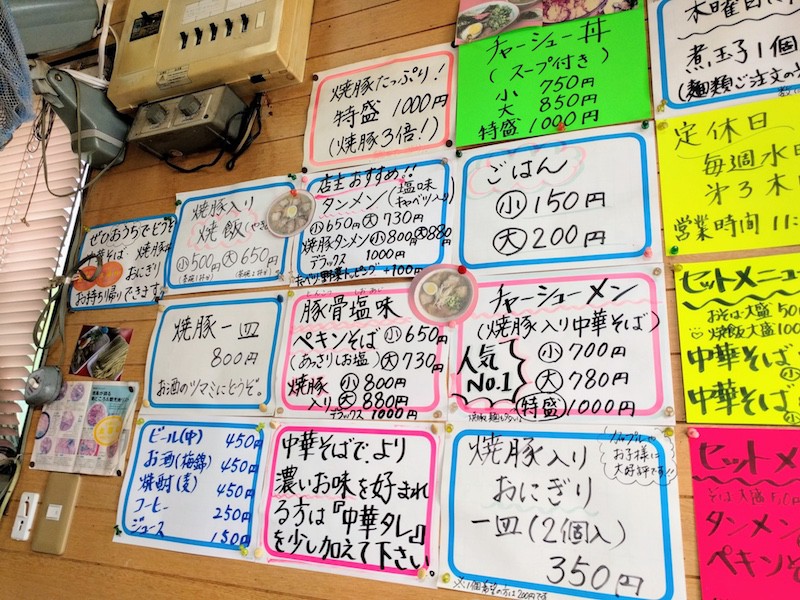 焼豚たっぷり!
特盛 1000円
(焼豚3倍!)
チャーシュー丼
(スープ付き)
小 750円
大 850円
特盛 1000円
木曜日に
煮玉子1個
(麺類ご注文の
定休日
毎週水
第3木
営業時間 11:
ぜひおうちでどうぞ
おにぎり
お持ち帰りできます
焼豚入り
焼飯
小500円 大650円
店主おすすめ!!
タンメン(塩味
キャベツ入り)
小650円 大730円
焼豚タンメン小800円大880円
デラックス 1000円
キャベツ・野菜トッピング+100円
ごはん
小 150円
大 200円
焼豚一皿
800円
お酒のツマミにどうぞ。
豚骨塩味
ペキンそば 小650円
(あっさりしお塩) 大730円
焼豚 小800円
入り 大880円
デラックス 1000円
チャーシューメン
(焼豚入り中華そば)
人気
No.1
小 700円
大 780円
特盛 1000円
セットメニュー
おそば大盛 50円
焼飯大盛 100
中華そば 小
中華そば 小
ビール(中) 450円
お酒(梅錦) 450円
焼酎(麦) 450円
コーヒー 250円
ジュース 150円
中華そばでより
濃いお味を好まれ
る方は『中華タレ』
を少し加えて下さい。
焼豚入り
おにぎり
一皿(2個入)
350円
お子様に
大好評です!!
※1個希望の方は200円です
セットメ
そば大盛50円
タンメン
ペキンそ